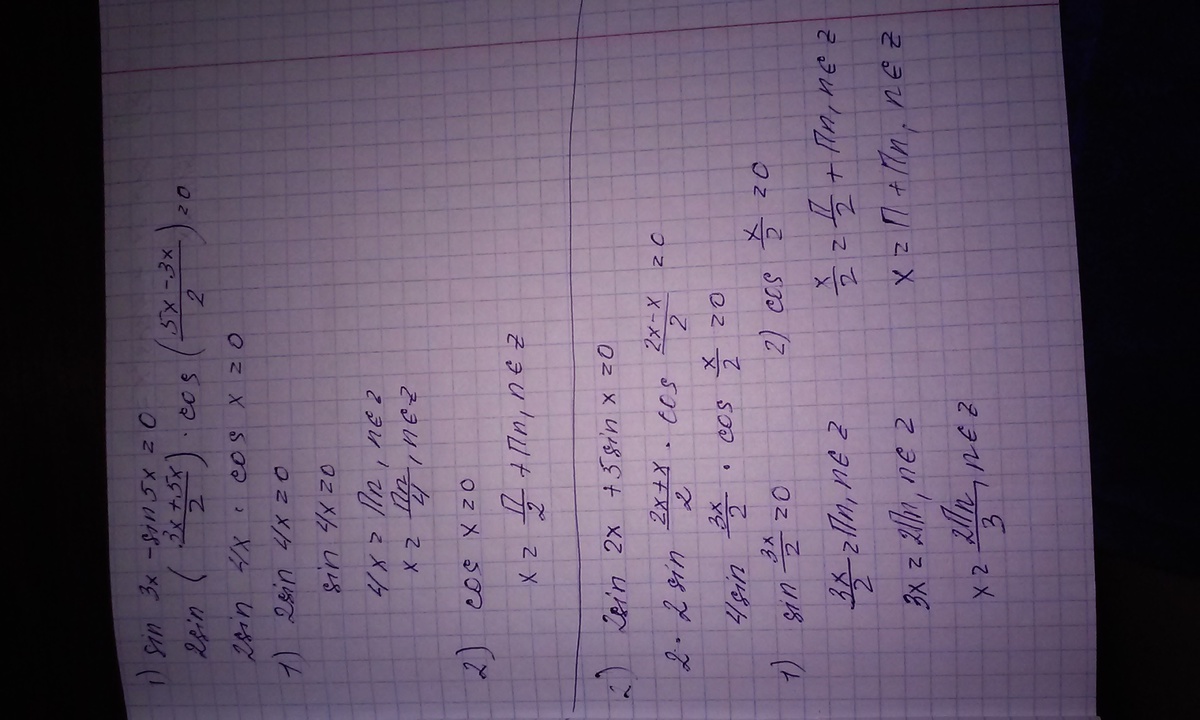 1) sin 3x - sin 5x = 0
2sin (3x+5x/2) · cos (5x-3x/2) = 0
2sin 4x · cos x = 0
1) 2sin 4x = 0
sin 4x = 0
4x = Пn, n∈z
x = Пn/4, n∈z
2) cos x = 0
x = П/2 + Пn, n∈z
2) 2sin 2x + 5sin x = 0
2 · 2sin 2x+x/2 · cos 2x-x/2 = 0
4sin 3x/2 · cos x/2 = 0
1) sin 3x/2 = 0 2) cos x/2 = 0
3x/2 = Пn, n∈z x/2 = П/2 + Пn, n∈z
3x = 2Пn, n∈z x = П + Пn, n∈z
x = 2Пn/3, n∈z